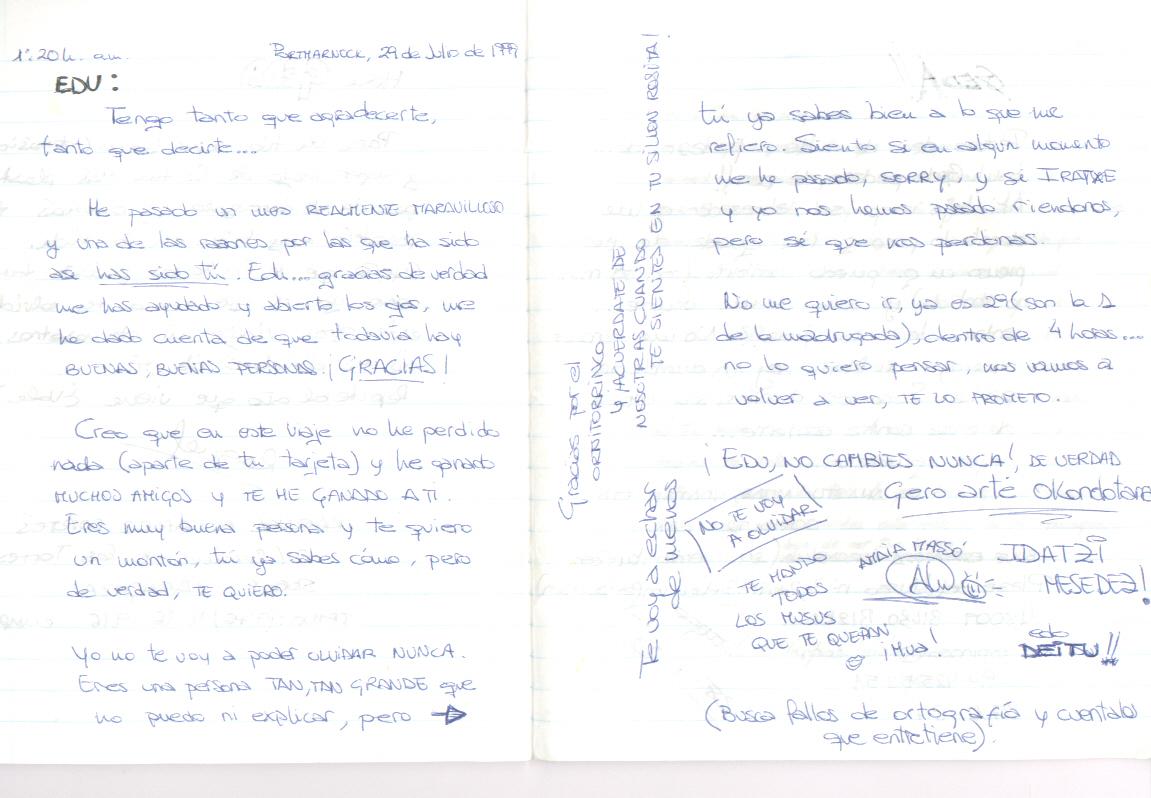 1:20 h. a.m.
PORTMARNOCK, 29 de Julio de 1999
EDU:
Tengo tanto que agradecerte,
tanto que decirte...
He pasado un mes REALMENTE MARAVILLOSO
y una de las razones por las que ha sido
así has sido tú. Edu.... gracias de verdad
me has ayudado y abierto los ojos, me
he dado cuenta de que todavía hay
BUENAS, BUENAS PERSONAS. ¡GRACIAS!
Creo que en este viaje no he perdido
nada (aparte de tu tarjeta) y he ganado
MUCHOS AMIGOS y TE HE GANADO A TI.
Eres muy buena persona y te quiero
un montón, tú ya sabes cómo, pero
de verdad, TE QUIERO.
Yo no te voy a poder OLVIDAR NUNCA.
Eres una persona TAN, TAN GRANDE que
no puedo ni explicar, pero
tú ya sabes bien a lo que me
refiero. Siento si en algún momento
me he pasado, SORRY, y si IRATXE
y yo nos hemos pasado riendonos,
pero sé que nos perdonas.
No me quiero ir, ya es 29 (son la 1
de la madrugada), dentro de 4 horas....
no lo quiero pensar, nos vamos a
volver a ver, TE LO PROMETO.
¡EDU, NO CAMBIES NUNCA!, DE VERDAD
Gero arte Okondotarra
Gracias por el
ORNITORRINCO
Y ¡ACUERDATE DE
NOSOTRAS CUANDO
TE SIENTES EN
SILLON ROSITA!
Te voy a echar
de menos
NO TE VOY
A OLVIDAR
TE MANDO
TODOS
LOS MUSUS
QUE TE QUEPAN
¡MUA!
AMAIA MASSÓ
IDATZI
MESEDEZ!
edo
DEITU!!
(Busca fallos de ortografía y cuentalos
que entretiene).